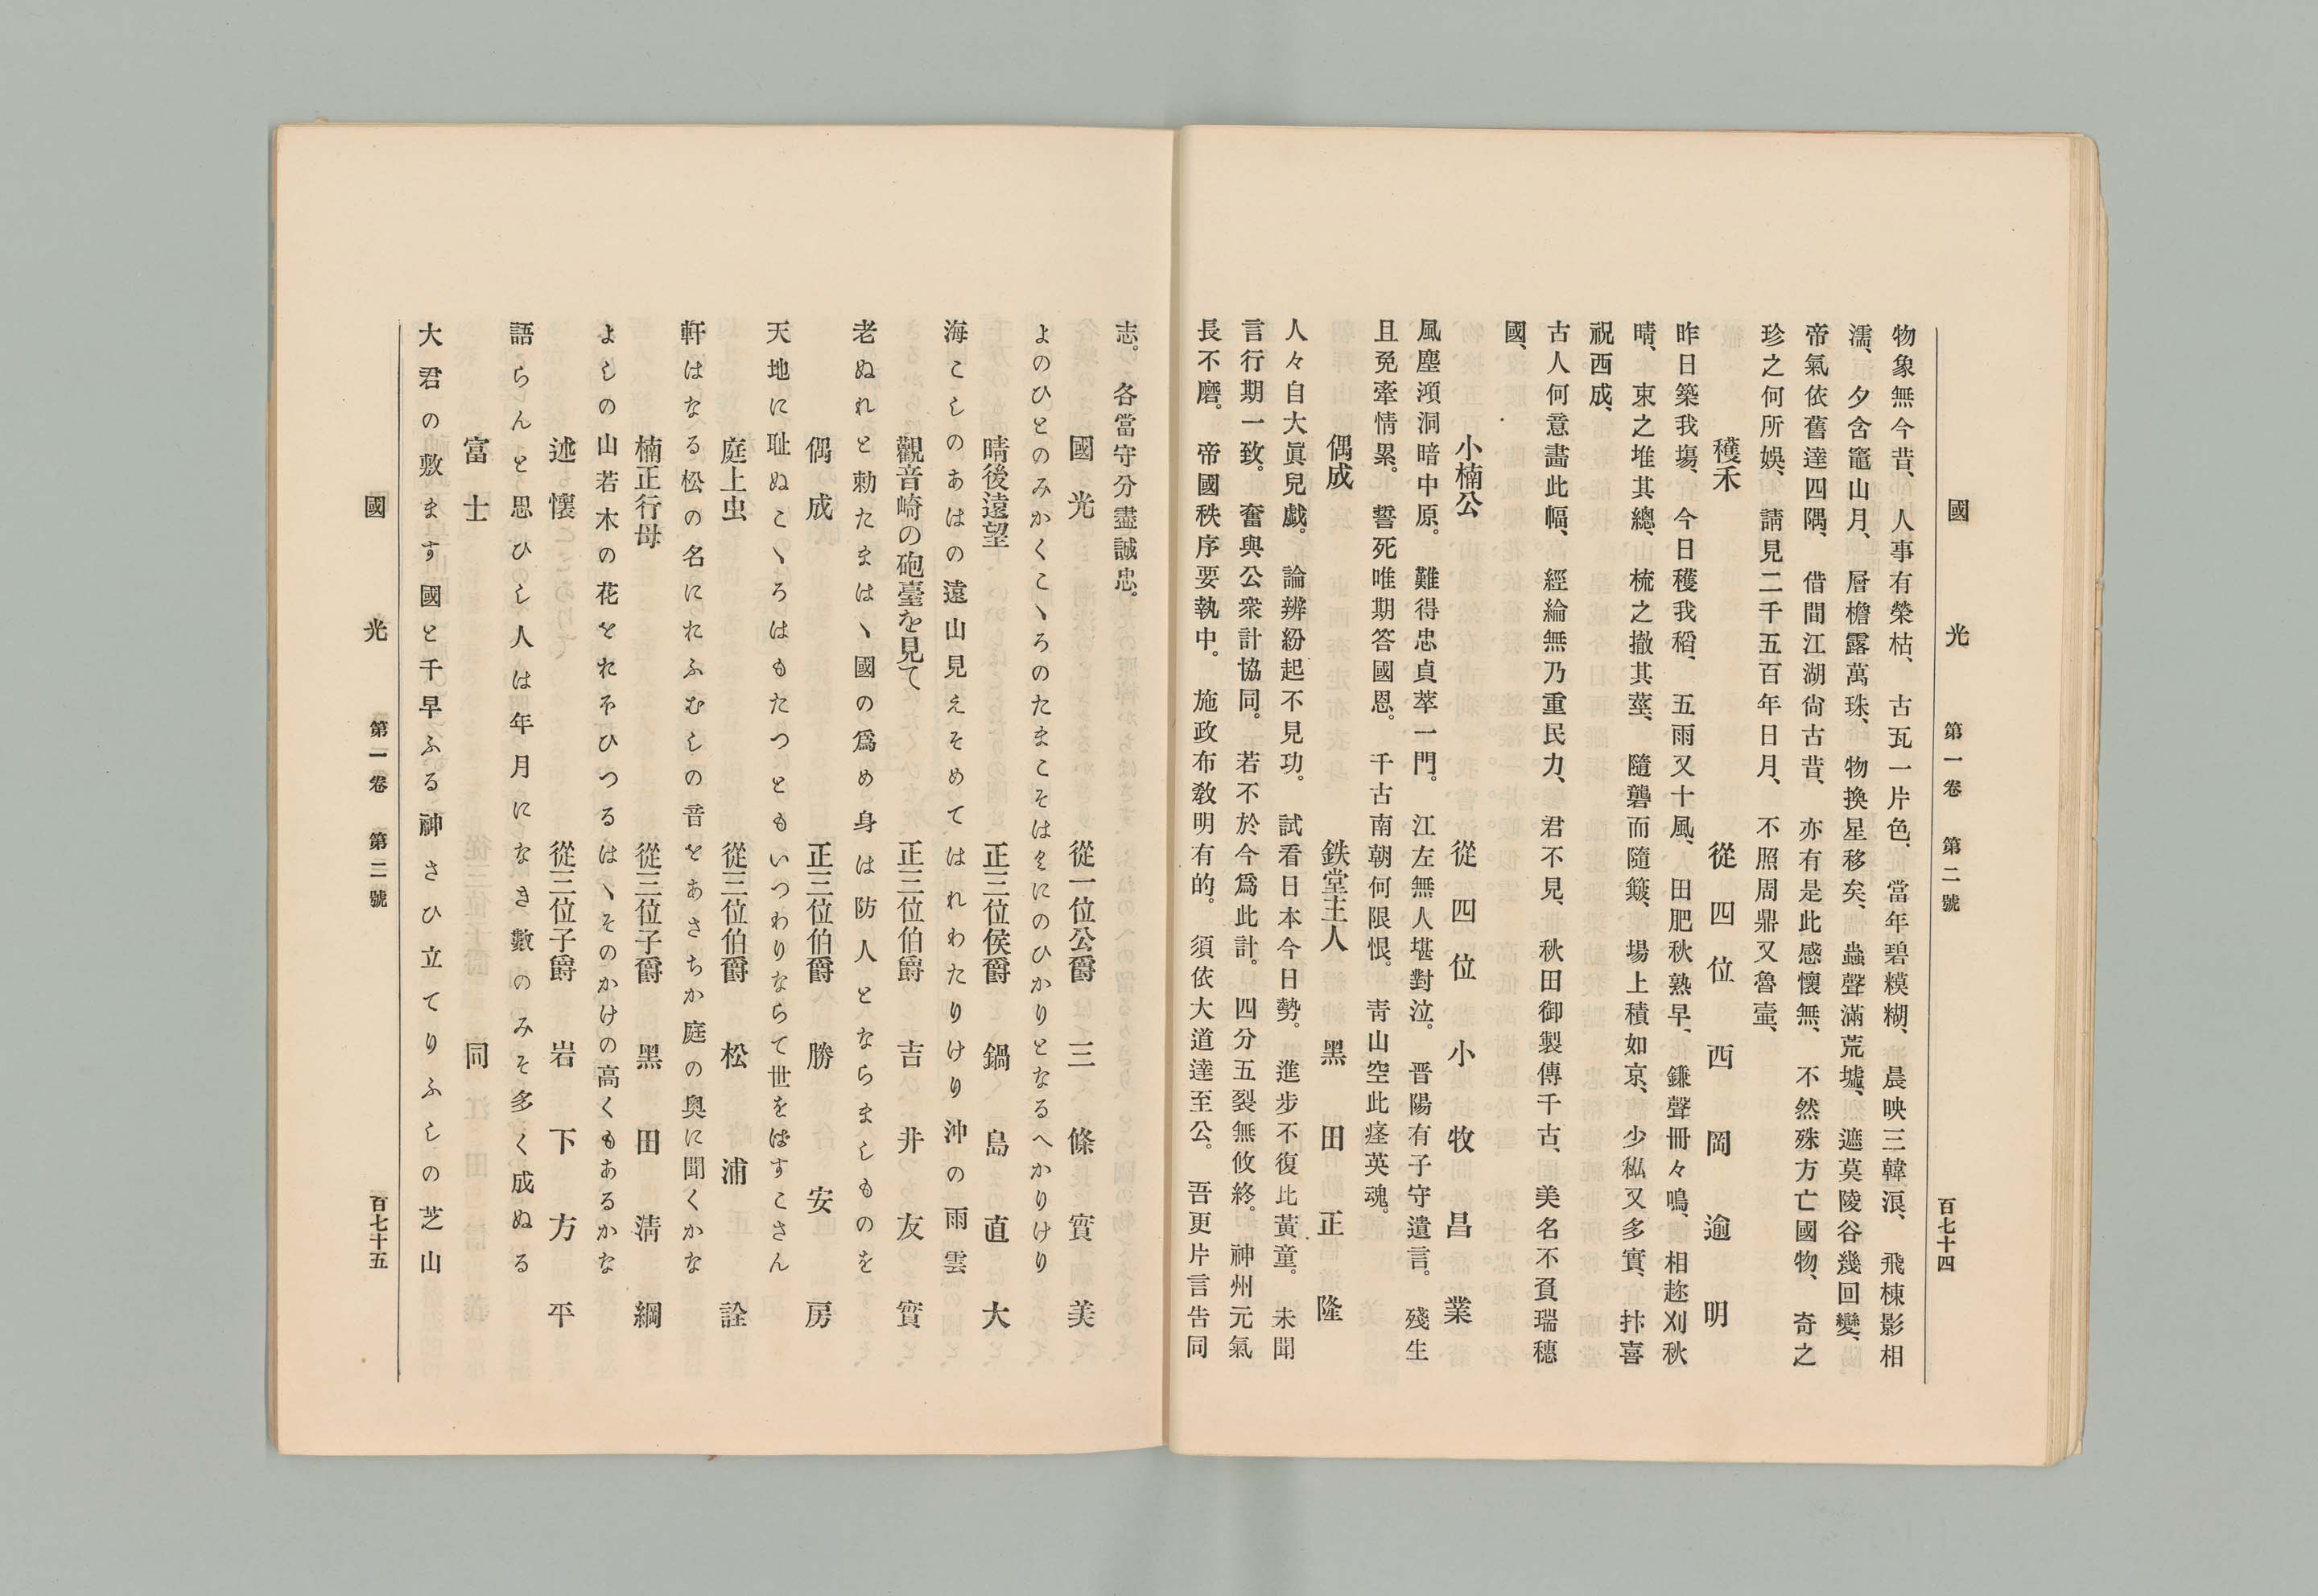 國光 第一卷 第二號 百七十四
物象無今昔、人事有榮枯、古瓦一片色、當年碧糢糊、晨映三韓浪、飛棟影相
濡、夕含竈山月、層檐露萬珠、物換星移矣、蟲聲滿荒墟、遮莫陵谷幾回變、
帝氣依舊達四隅、借間江湖尙古昔、亦有是此感懷無、不然殊方亡國物、奇之
珍之何所娛、請見二千五百年日月、不照周鼎又魯壷、
穫禾 從四位 西岡逾明
昨日築我塲、今日穫我稻、五雨又十風、田肥秋熟早、鎌聲冊々鳴、相趂刈秋
晴、束之堆其總、梳之撤其莖、隨礱而隨簸、場上積如京、少私又多實、抃喜
祝西成、
古人何意畵此幅、經綸無乃重民力、君不見、秋田御製傳千古、美名不負瑞穗
國、
小楠公 從四位 小牧昌業
風塵澒洞暗中原。難得忠貞萃一門。江左無人堪對泣。晋陽有子守遺言。殘生
且免牽情累。誓死唯期答國恩。千古南朝何限恨。靑山空此瘞英魂。
偶成 鉄堂主人 黑田正隆
人々自大眞兒戱。論辨紛起不見功。試看日本今日勢。進步不復比黃童。未聞
言行期一致。奮與公衆計協同。若不於今爲此計。四分五裂無攸終。神州元氣
長不磨。帝國秩序要執中。施政布敎明有的。須依大道達至公。吾更片言告同
志。各當守分盡誠忠。
國光 從一位公爵 三條實美
よのひとのみかくこゝろのたまこそはくにのひかりとなるへかりけり
晴後遠望 正三位侯爵 鍋島直大
海こしのあはの遠山見えそめてはれわたりけり沖の雨雲
觀音崎の砲臺を見て 正三位伯爵 吉井友實
老ぬれと勅たまはゝ國の爲め身は防人とならましものを
偶成 正三位伯爵 勝安房
天地に耻ぬこゝろはもたつともいつわりならて世をばすこさん
庭上虫 從三位伯爵 松浦詮
軒はなる松の名にれふむしの音をあさちか庭の奧に聞くかな
楠正行母 從三位子爵 黑田淸綱
よしの山若木の花をれをひつるはゝそのかけの高くもあるかな
述懷 從三位子爵 岩下方平
語らんと思ひし人は年月になき數のみそ多く成ぬる
富士 同
大君の敷ます國と千早ふる神さひ立てりふしの芝山
國光 第一卷 第二號 百七十五